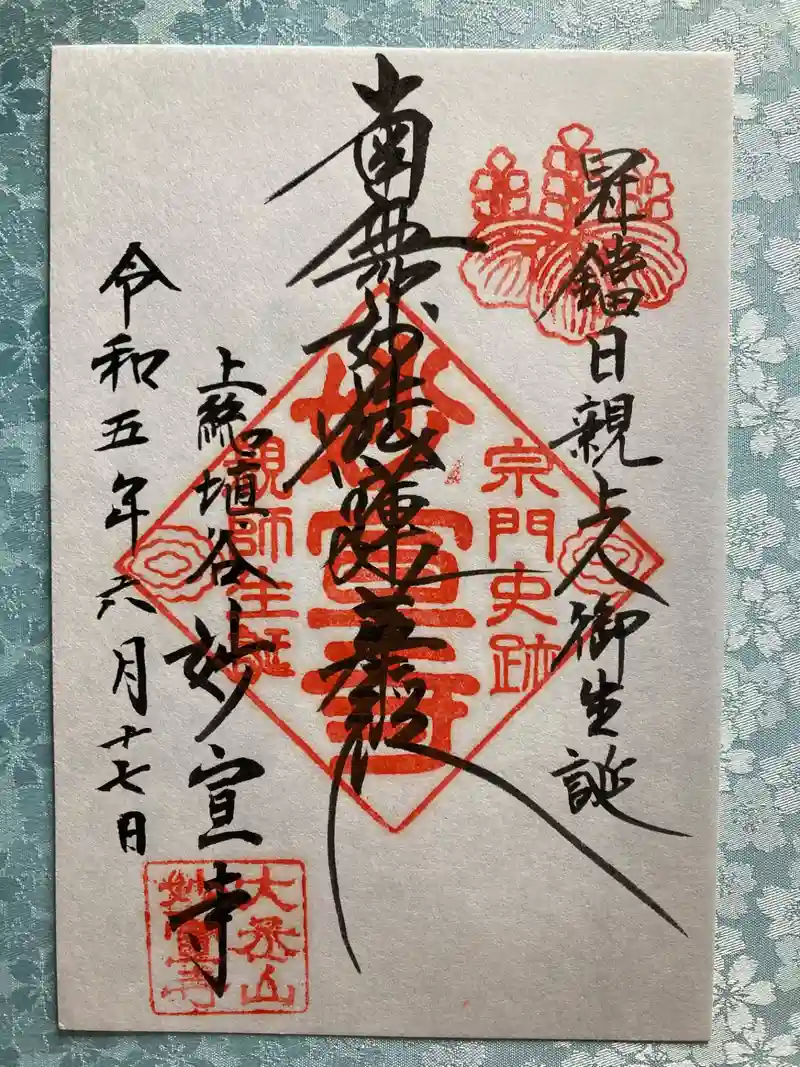 冠鐺日親上人御生誕
南無妙法蓮華経
上総埴谷妙宣寺
令和五年六月十七日
宗門史跡
妙宣寺
親師生誕
妙宣寺